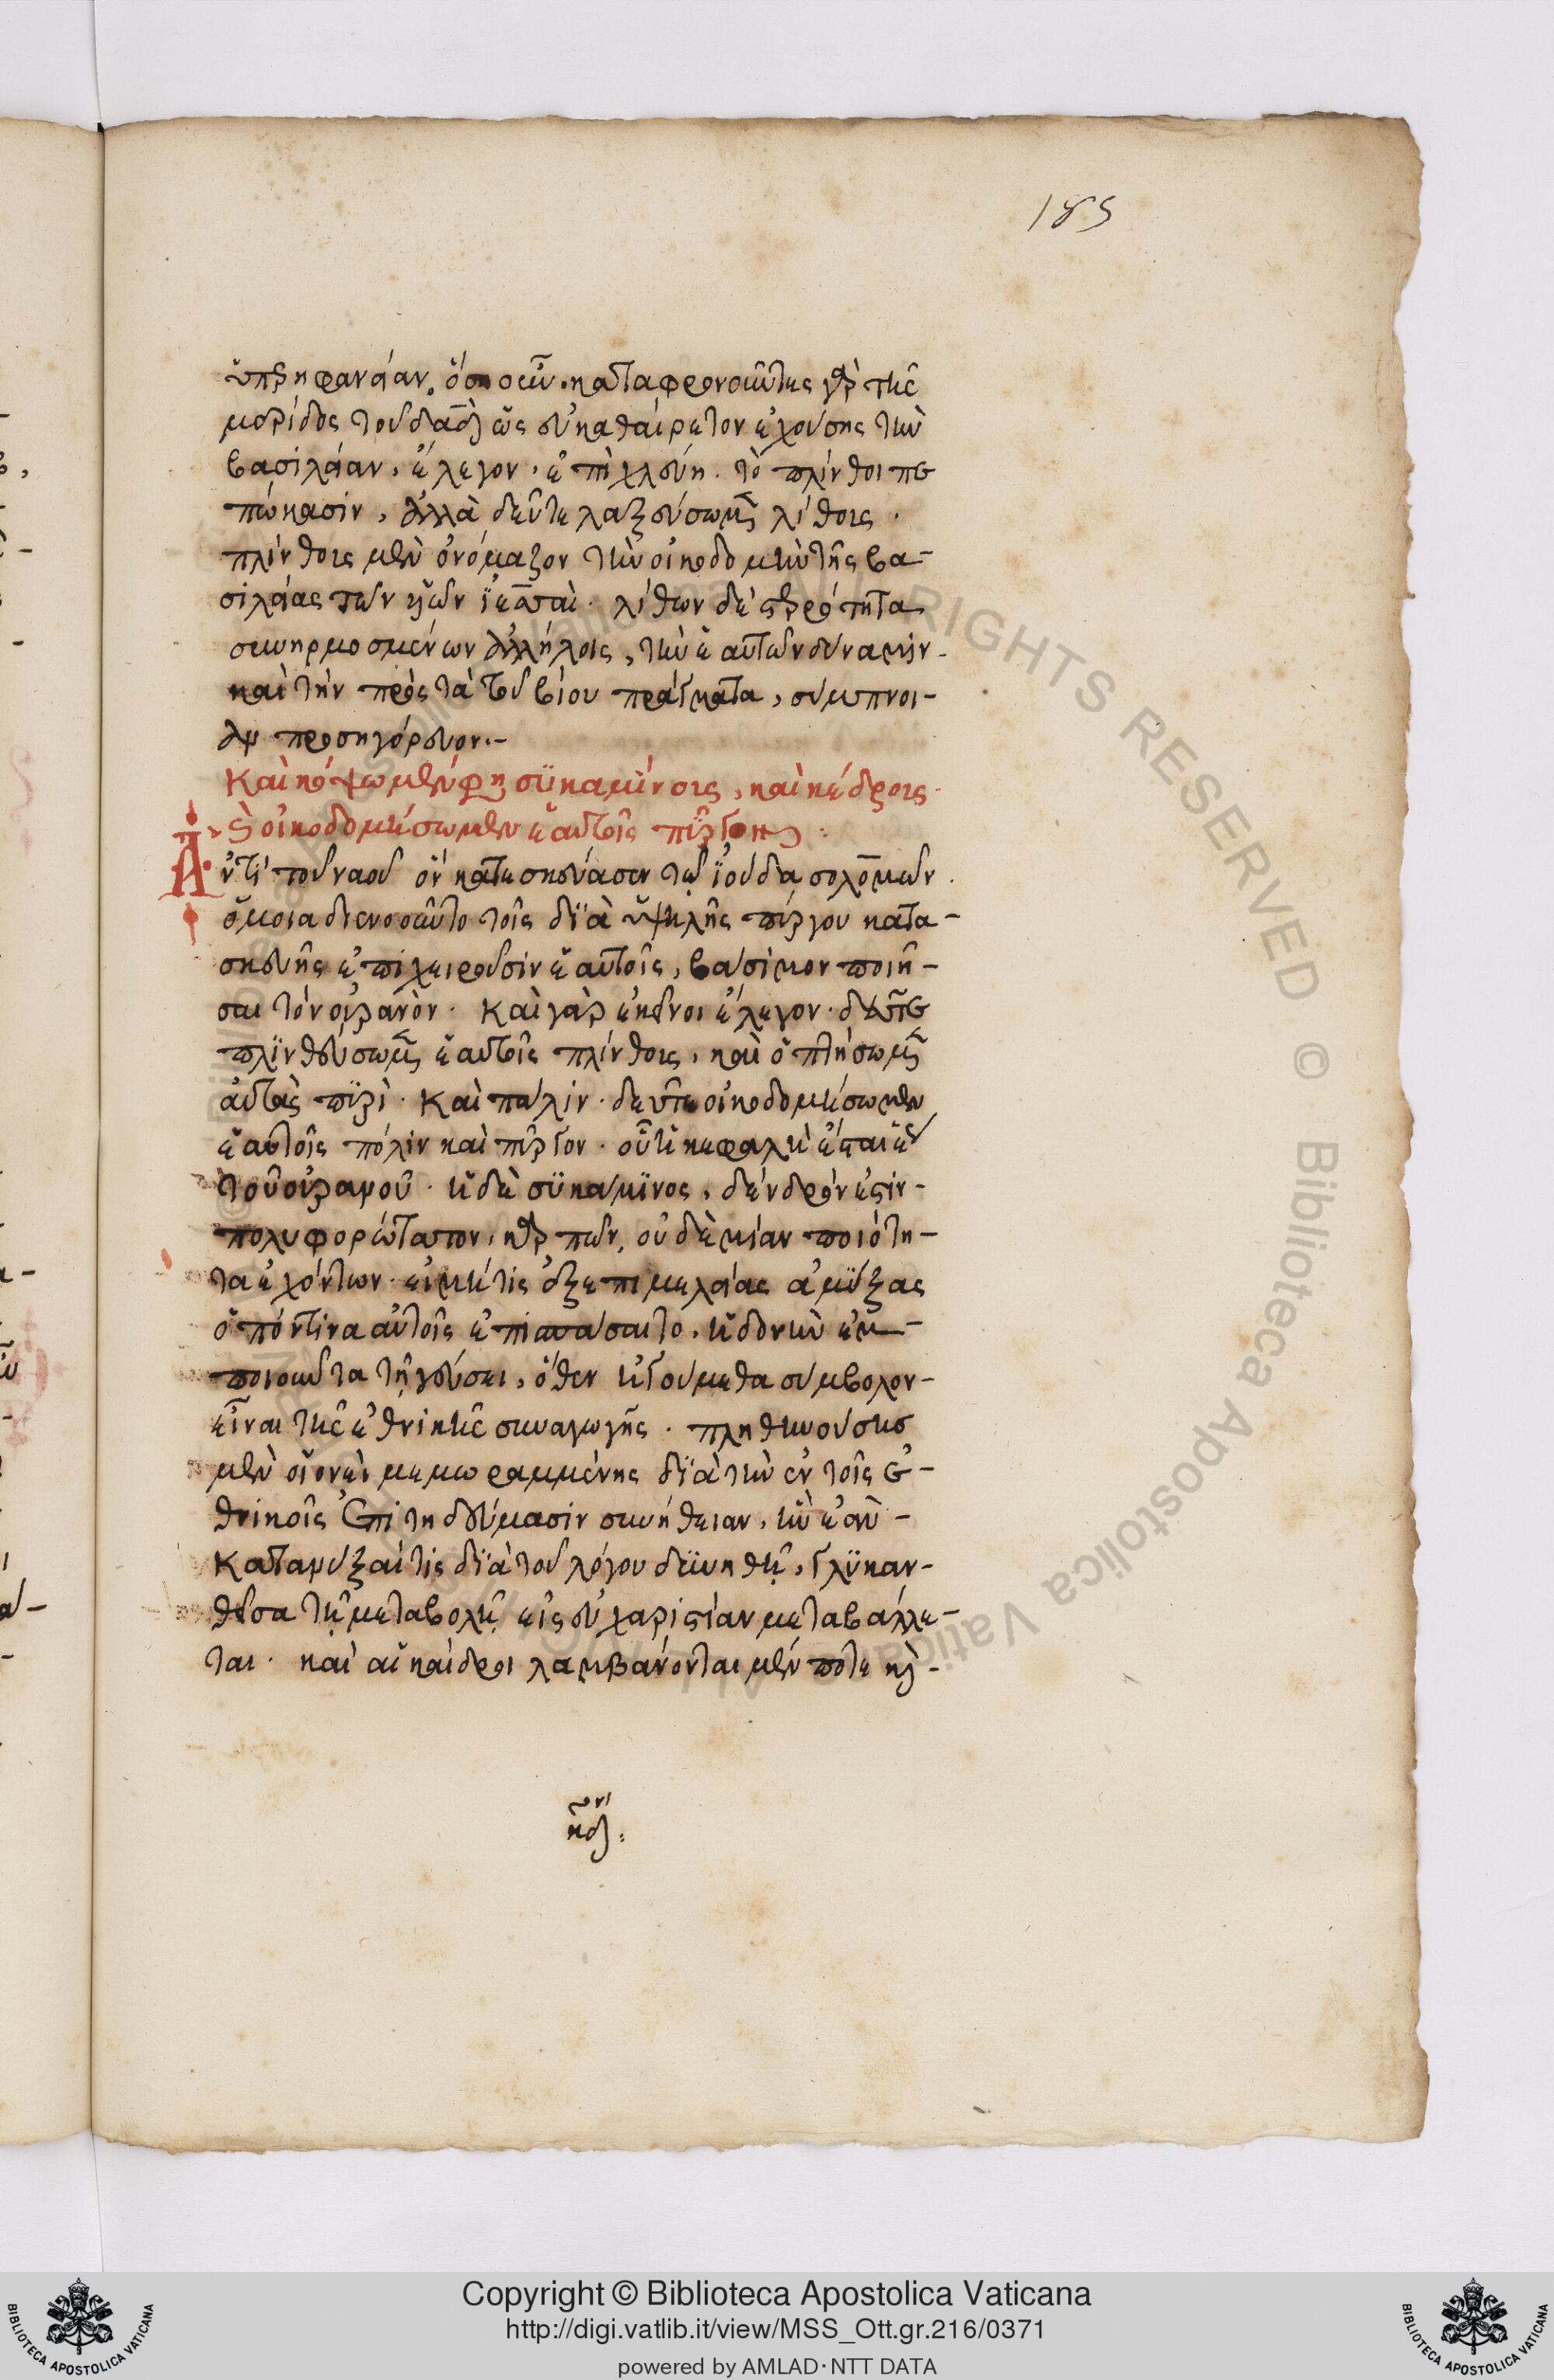 185
ὑπερηφανείαν. ὅση οὖν. καταφρονοῦντες γὰρ τῆς
μερίδος τοῦ δαδ ὡς εὐκαθαίρετον ἐχούσης τὴν
βασιλείαν, ἔλεγον, ἐπὶ χλεύη. τὸ πλίνθοι πε
πτώκασιν, ἀλλὰ δεῦτε λαξεύσωμεν λίθοις.
πλίνθοις μὲν ὀνόμαζον τὴν οἰκοδομὴν τῆς βα-
σιλείας τῶν λίθων δὲ στερρότητα
συνηρμοσμένων ἀλλήλοις, τὴν ἑαυτῶν δύναμιν
καὶ τὴν πρὸς τὰ τοῦ βίου πράγματα, σύμπνοι-
αν προσηγόρευον.-
Καὶ κόψωμεν φησὶ συκαμίνοις, καὶ κέδροις.
καὶ οἰκοδομήσωμεν ἑαυτοῖς πύργον :
Ἀντὶ τοῦ ναοῦ ὃν κατεσκεύασεν τῷ ἰούδα σολομών.
ὅμοια διενοοῦντο τοῖς διὰ ὑψηλῆς πύργου κατα-
σκευῆς ἐπιχειροῦσιν ἑαυτοῖς, βάσιμον ποιῆ-
σαι τὸν οὐρανόν. Καὶ γὰρ ἐκεῖνοι ἔλεγον. δεῦτε
πλινθεύσωμεν ἑαυτοῖς πλίνθοις, καὶ ὀπτήσωμεν
αὐτὰς πυρί. Καὶ πάλιν. δεῦτε οἰκοδομήσωμεν
ἑαυτοῖς πόλιν καὶ πύργον. οὗ ἡ κεφαλὴ ἔσται ἕως
τοῦ οὐρανοῦ. ἡ δὲ συκάμινος, δένδρον ἐστιν
πολυφορώτατον, καρπῶν, οὐδεμίαν ποιότη-
τα ἐχόντων. εἰ μή τις ἐξ ἐπιμελείας ἀμύξας
ὀπόν τινα αὐτοῖς ἐπισπάσαιτο, ἡδονὴν ἐμ-
ποιοῦντα τῇ γεύσει, ὅθεν ἡγούμεθα σύμβολον
εἶναι τῆς ἐθνικῆς συναγωγῆς. πληθυνούσης
μὲν οἱονεὶ μεμωραμμένης διὰ τὴν ἐν τοῖς ἐ-
θνικοῖς ἐπιτηδεύμασιν συνήθειαν, ἣν ἐὰν
καταμύξαί τις διὰ τοῦ λόγου δυνηθῇ, γλυκαν-
θεῖσα τῇ μεταβολῇ εἰς εὐχρηστίαν μεταβάλλε-
ται. καὶ αἱ καίδροι λαμβάνονται μέν ποτε